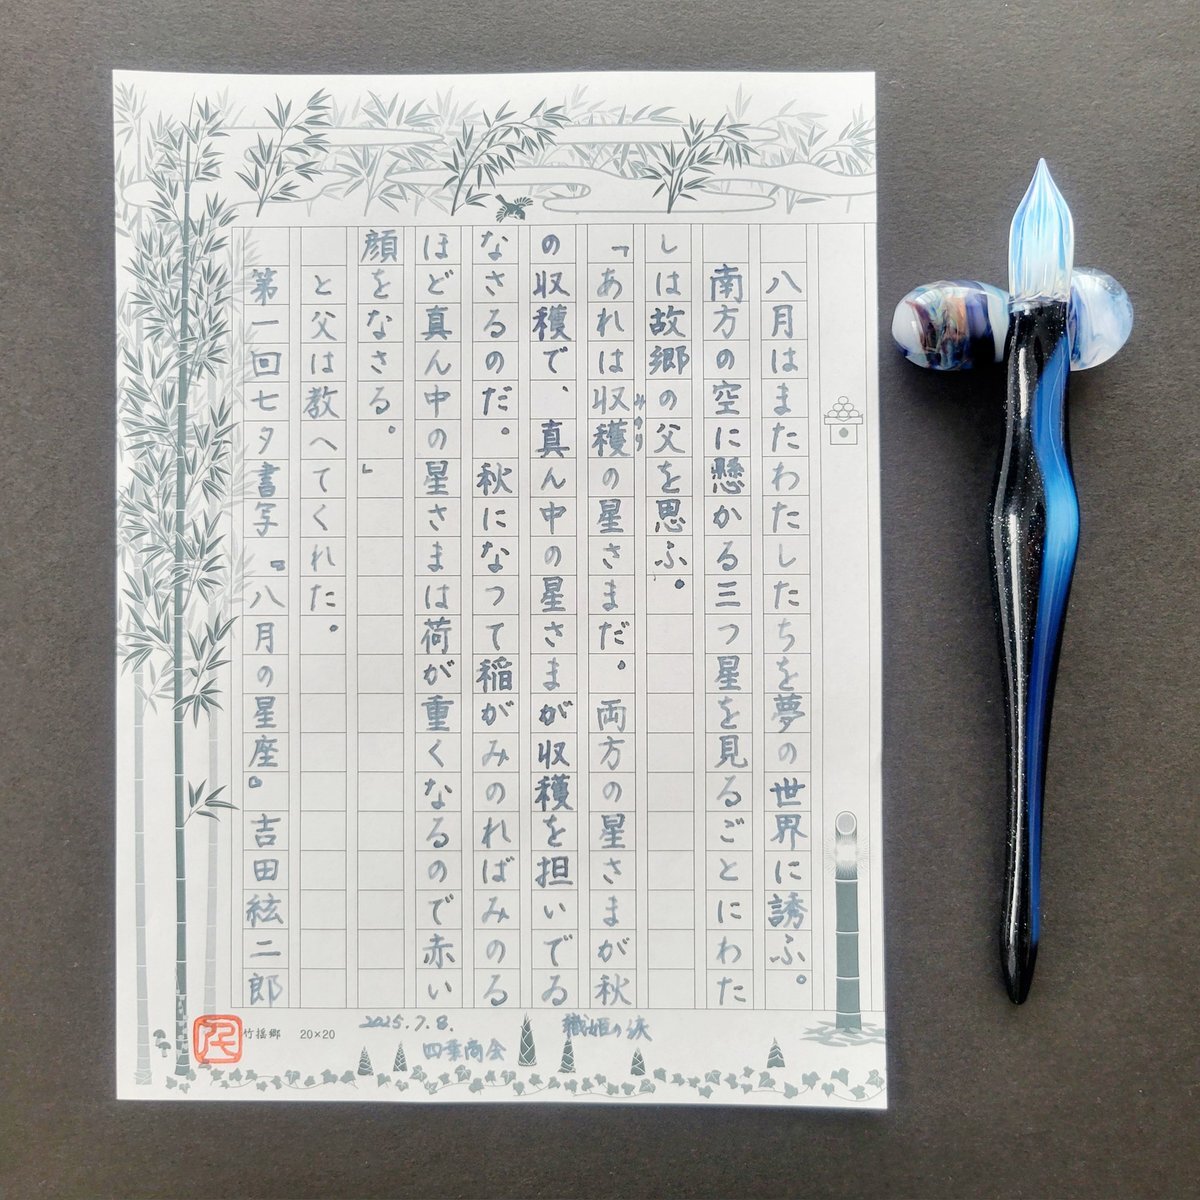 八月はまたわたしたちを夢の世界に誘ふ。
南方の空に懸かる三つ星を見るごとにわた
しは故郷の父を思ふ。
「あれは収穫の星さまだ。両方の星さまが秋
みのり
の収穫で、真ん中の星さまが収穫を担いでゐ
なさるのだ。秋になつて稲がみのればみのる
ほど真ん中の星さまは荷が重くなるので赤い
顔をなさる。」
と父は教へてくれた。
第一回七夕書写『八月の星座』吉田絃二郎
竹揺郷 20×20
2025.7.8.
四季商会
織姫の涙